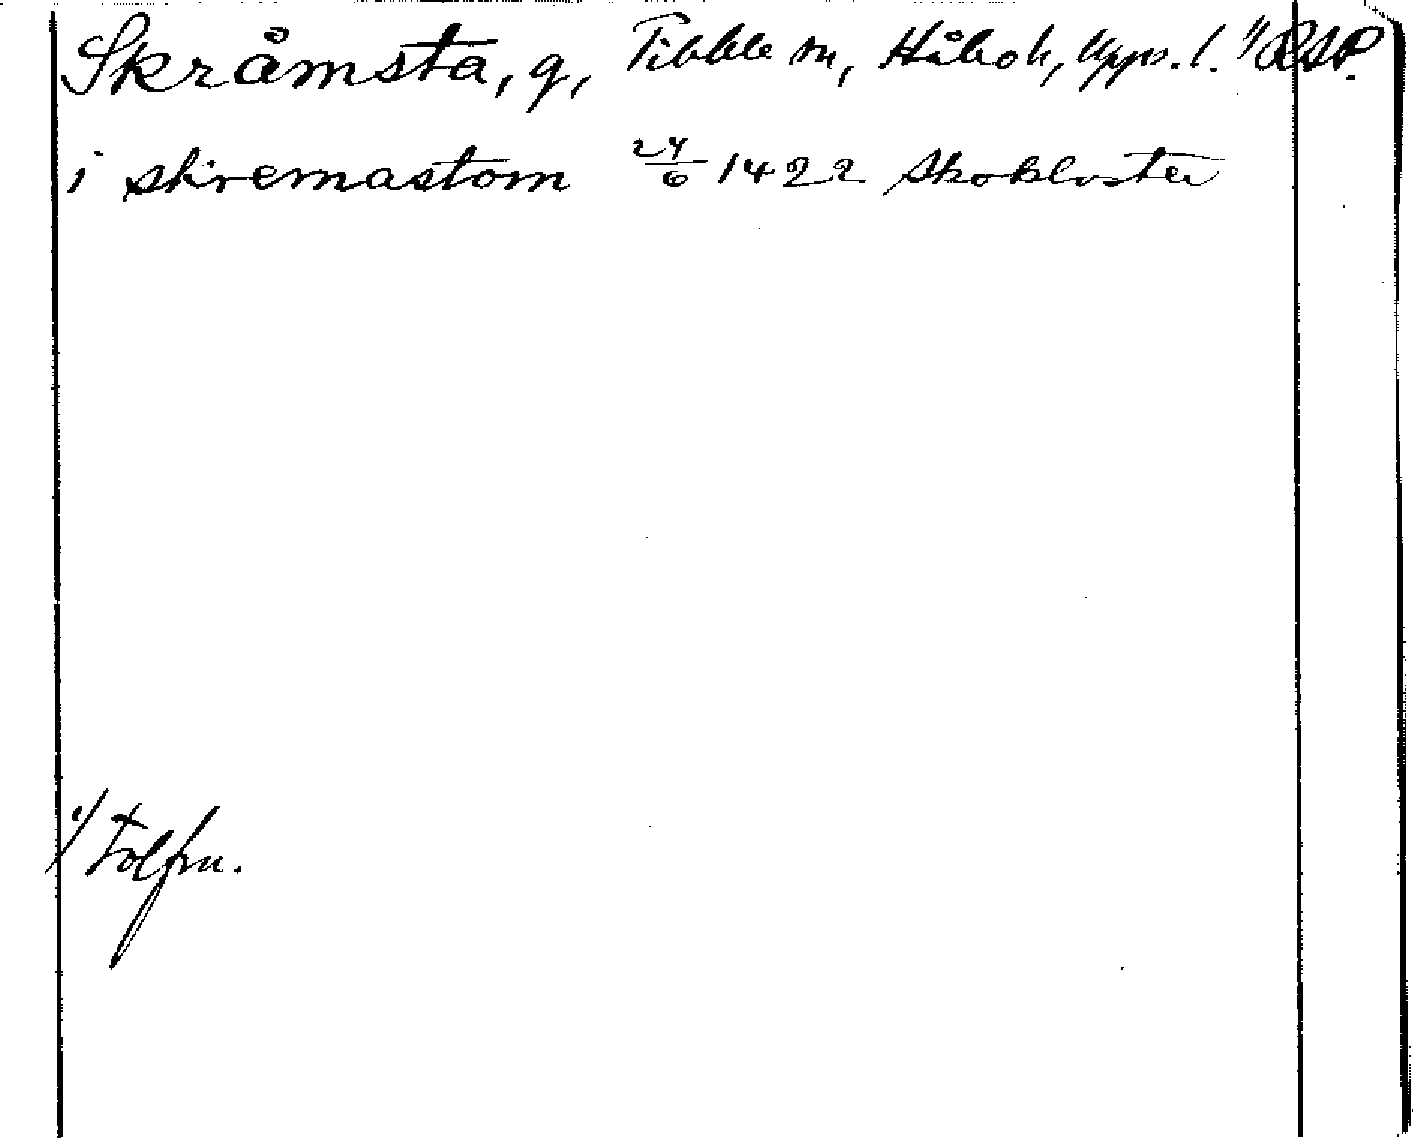 Skråmsta, g, Tibble sn, Håbo h, Upps. l. 1) RAP.
i skremastom 24/6 1422 Skokloster
1) Tolfm.